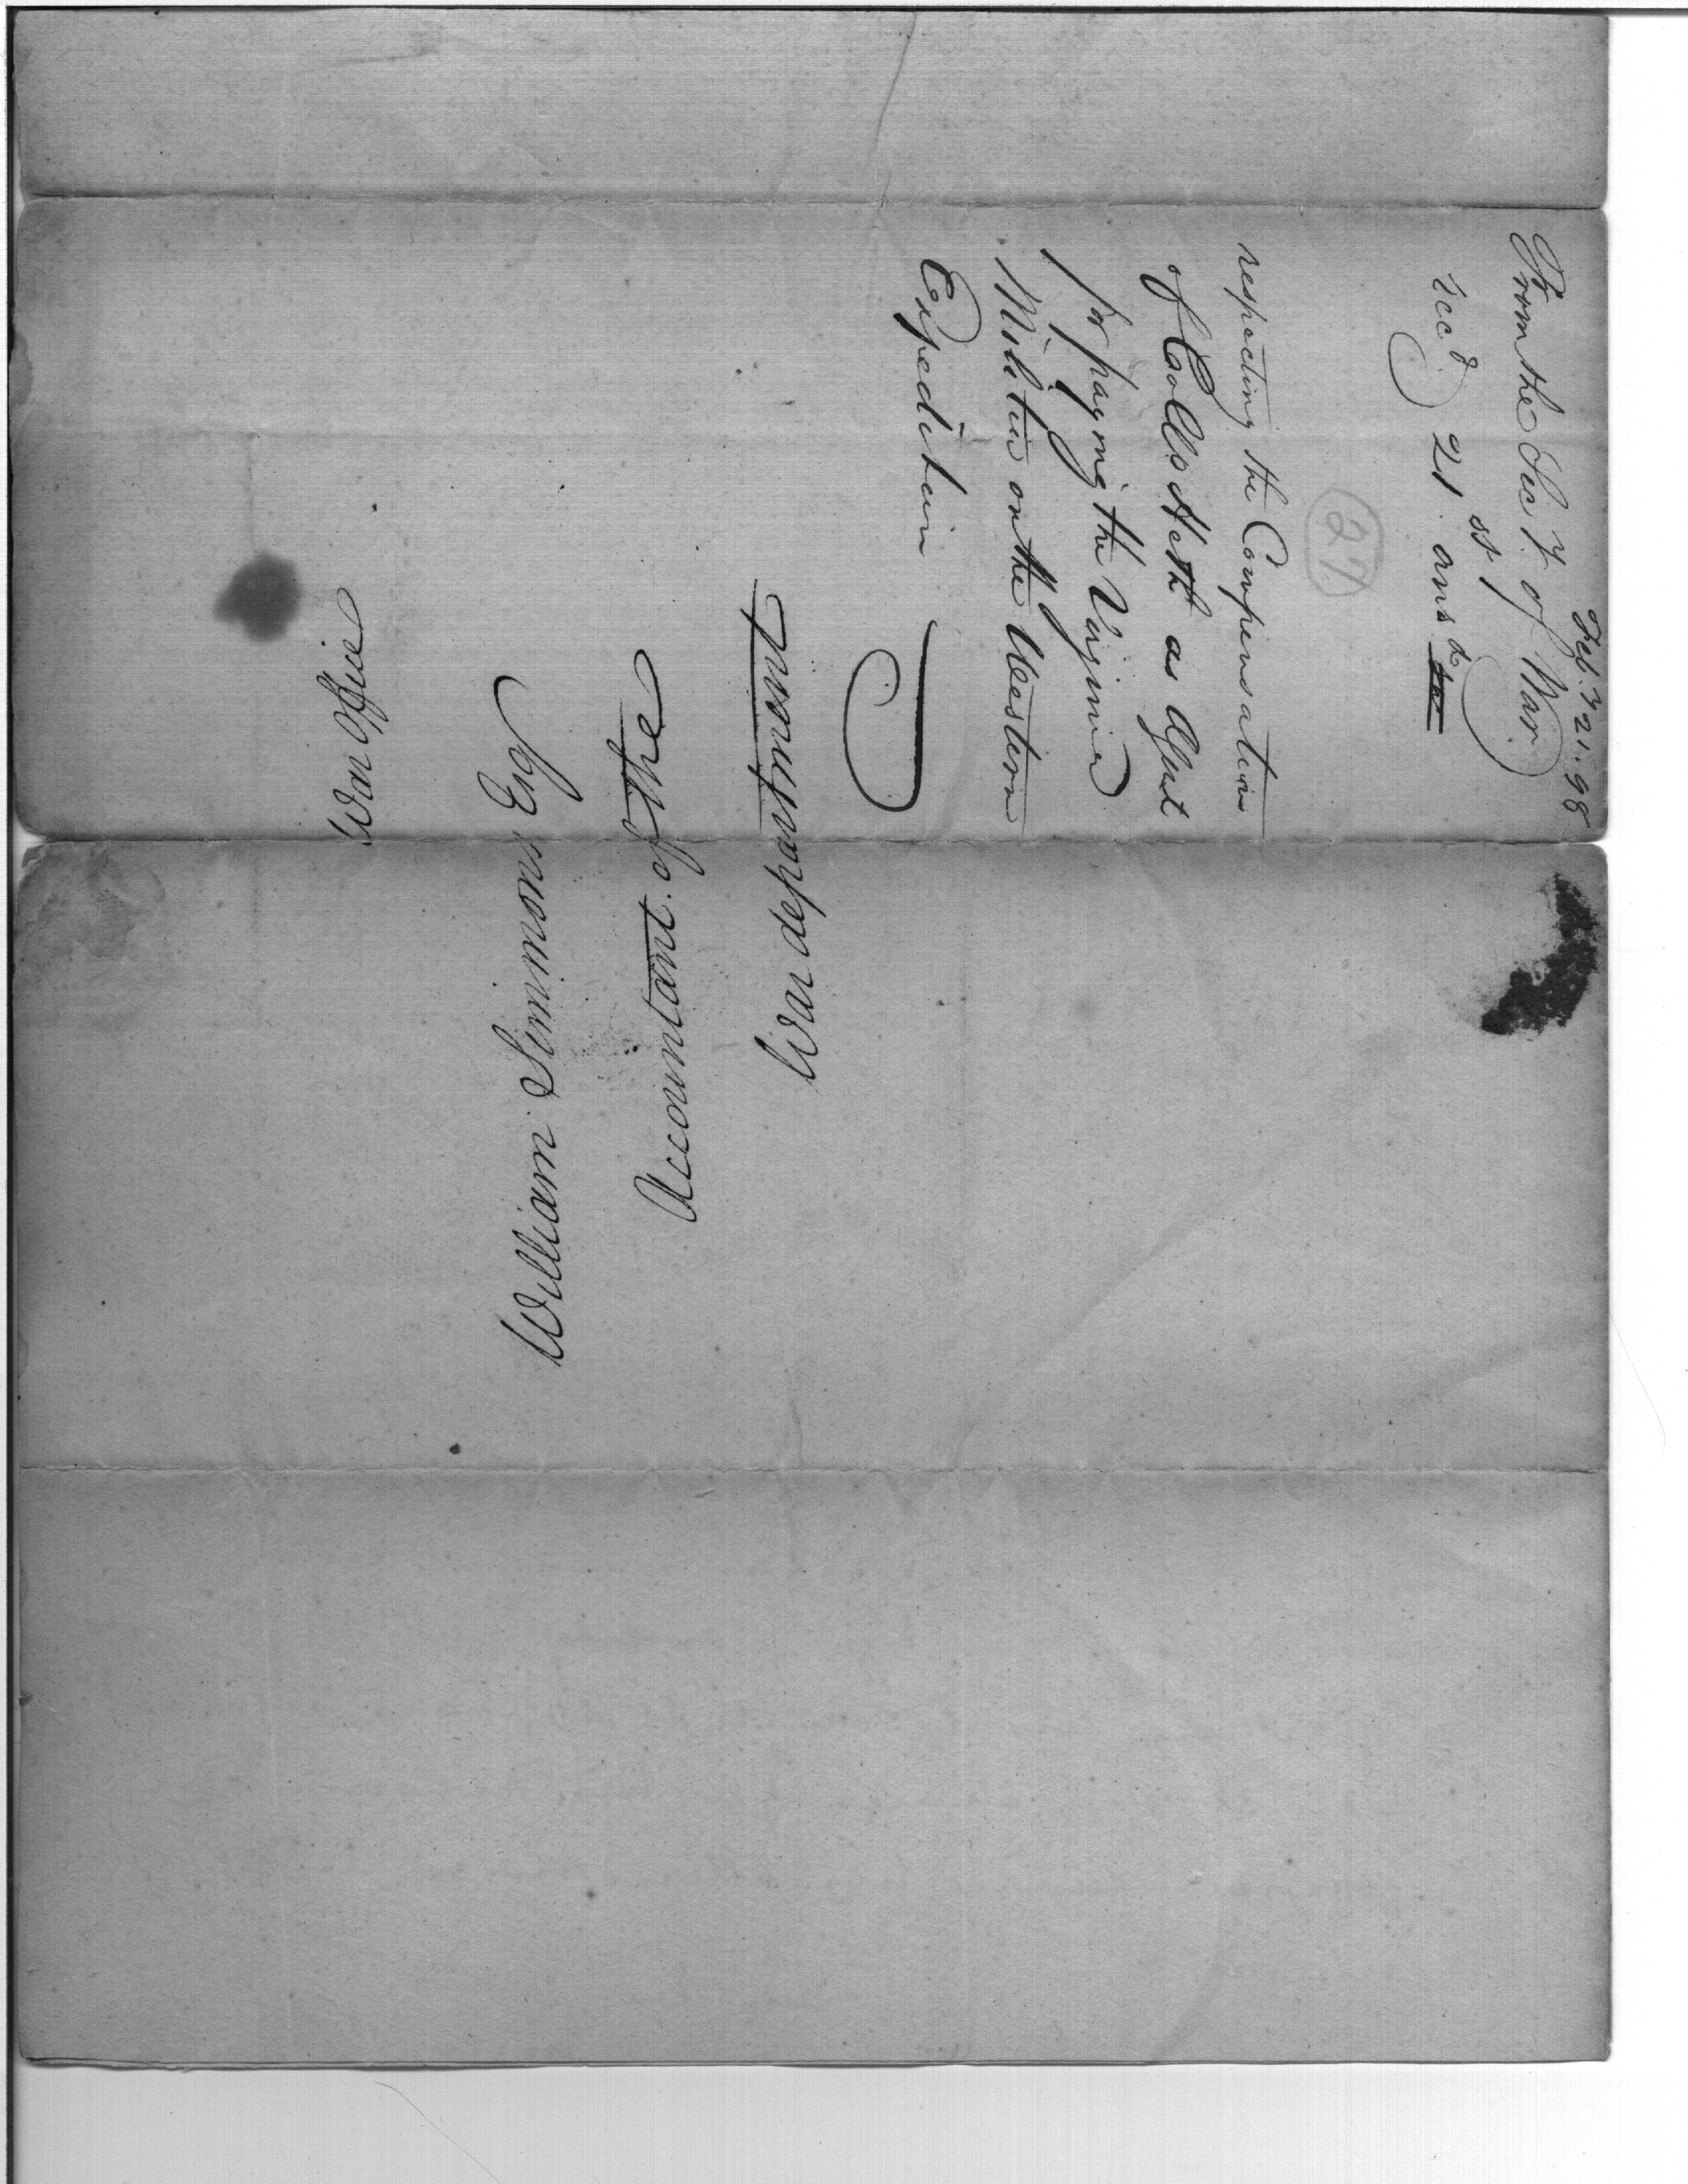 Feby. 21. 98
From the Secy. of War
recd. 21st ansd. do
27
respecting the Compensation
of Coll Heth as Agent
for paying the Virginia
Militia on the Western
Expedition
War Office
William Simmons Esqr
Accountant of the
War department